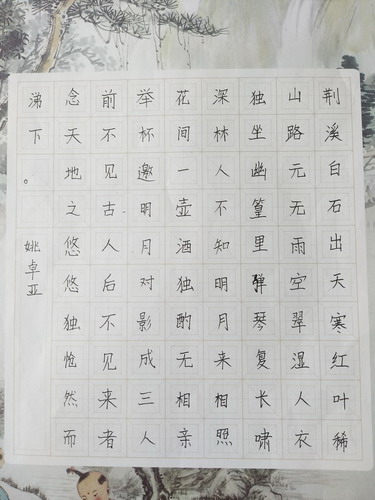 荆溪白石出天寒红叶稀
山路元无雨空翠湿人衣
独坐幽篁里弹琴复长啸
深林人不知明月来相照
花间一壶酒独酌无相亲
举杯邀明月对影成三人
前不见古人后不见来者
念天地之悠悠独怆然而
涕下。
姚卓亚